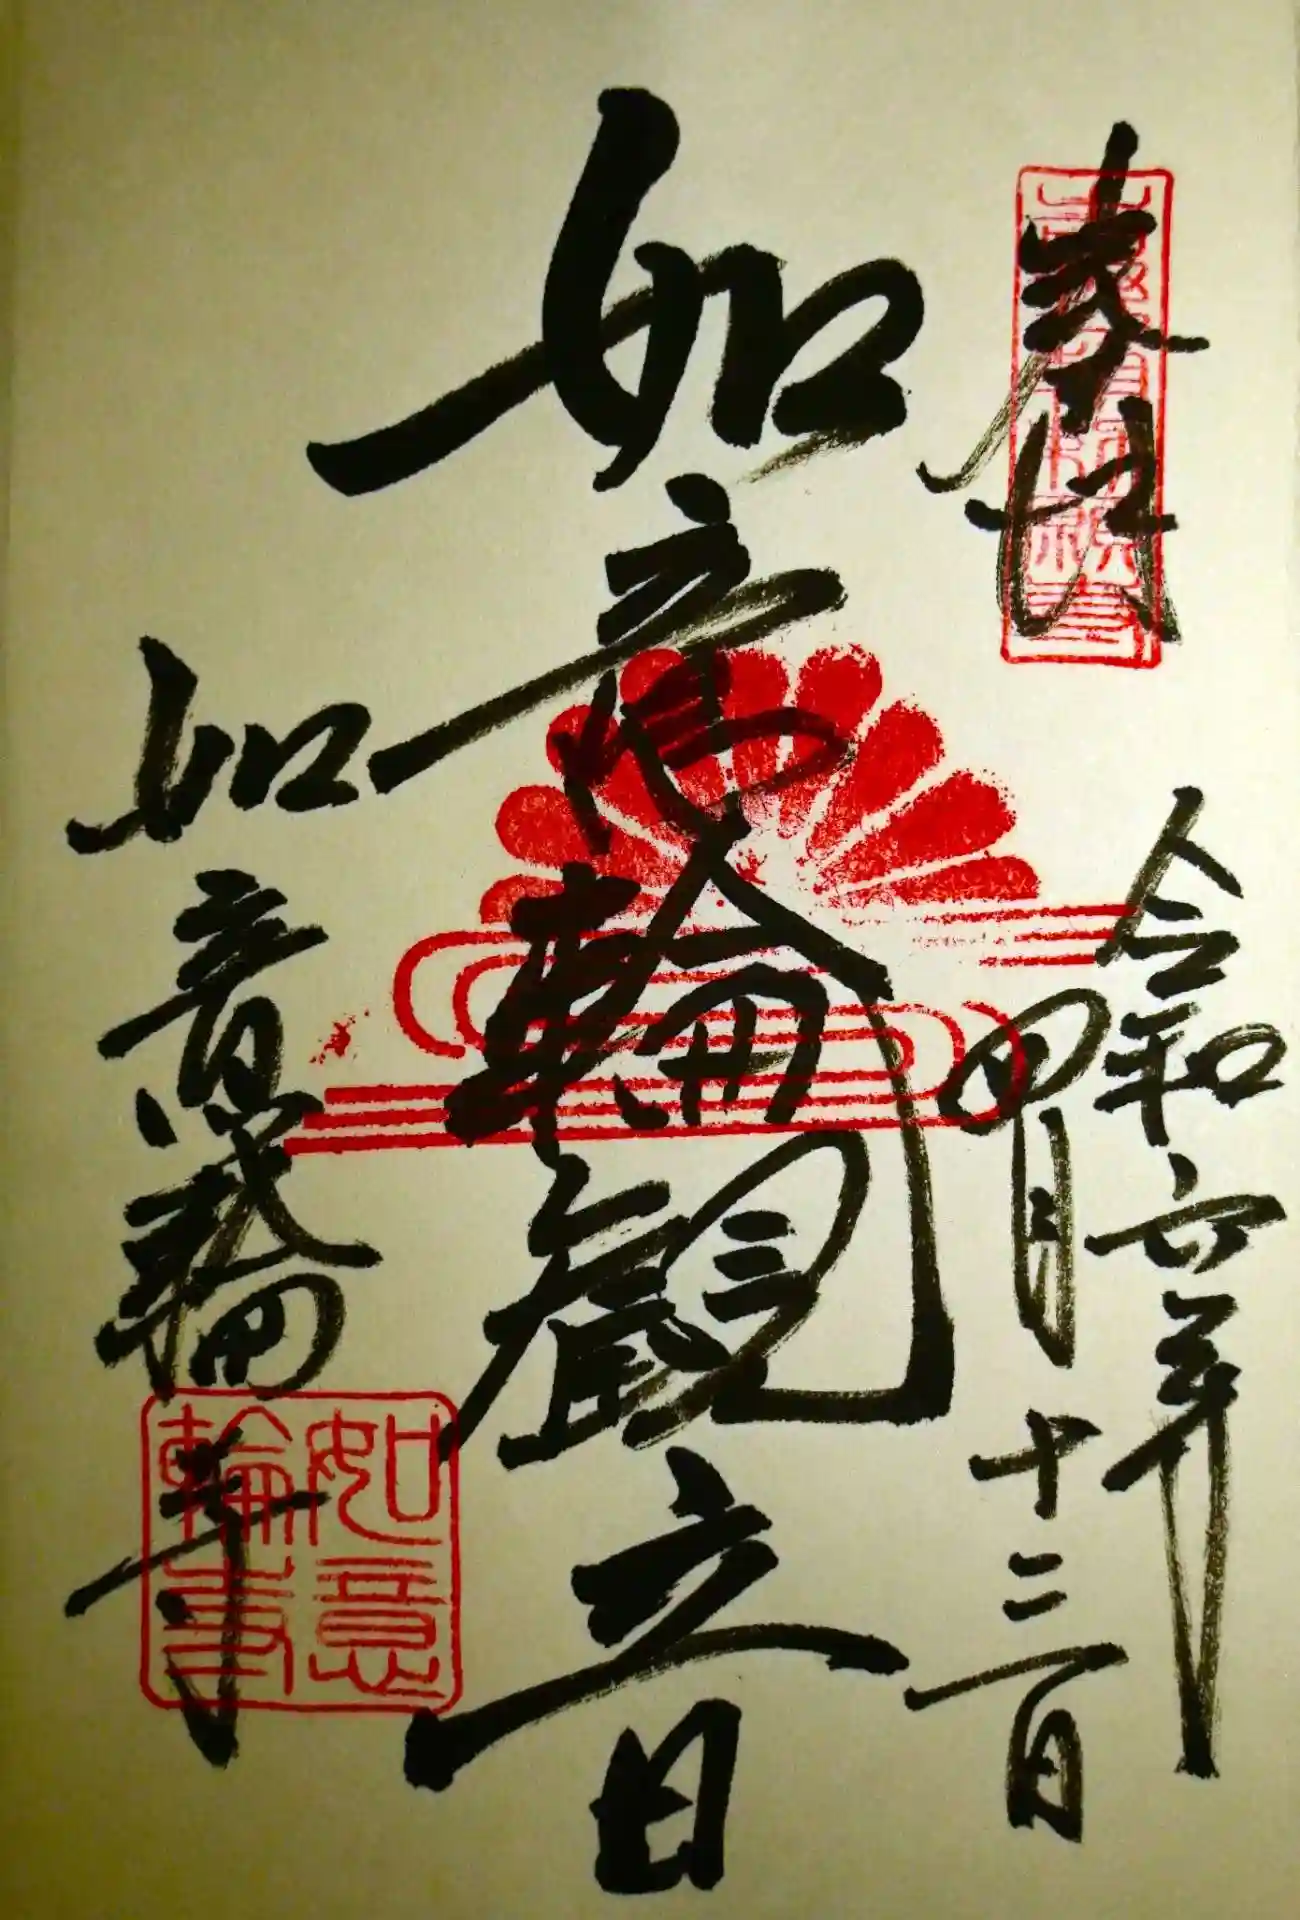 奉拝
令和六年
四月十三日
如意輪観音
如意輪寺
如意
輪寺